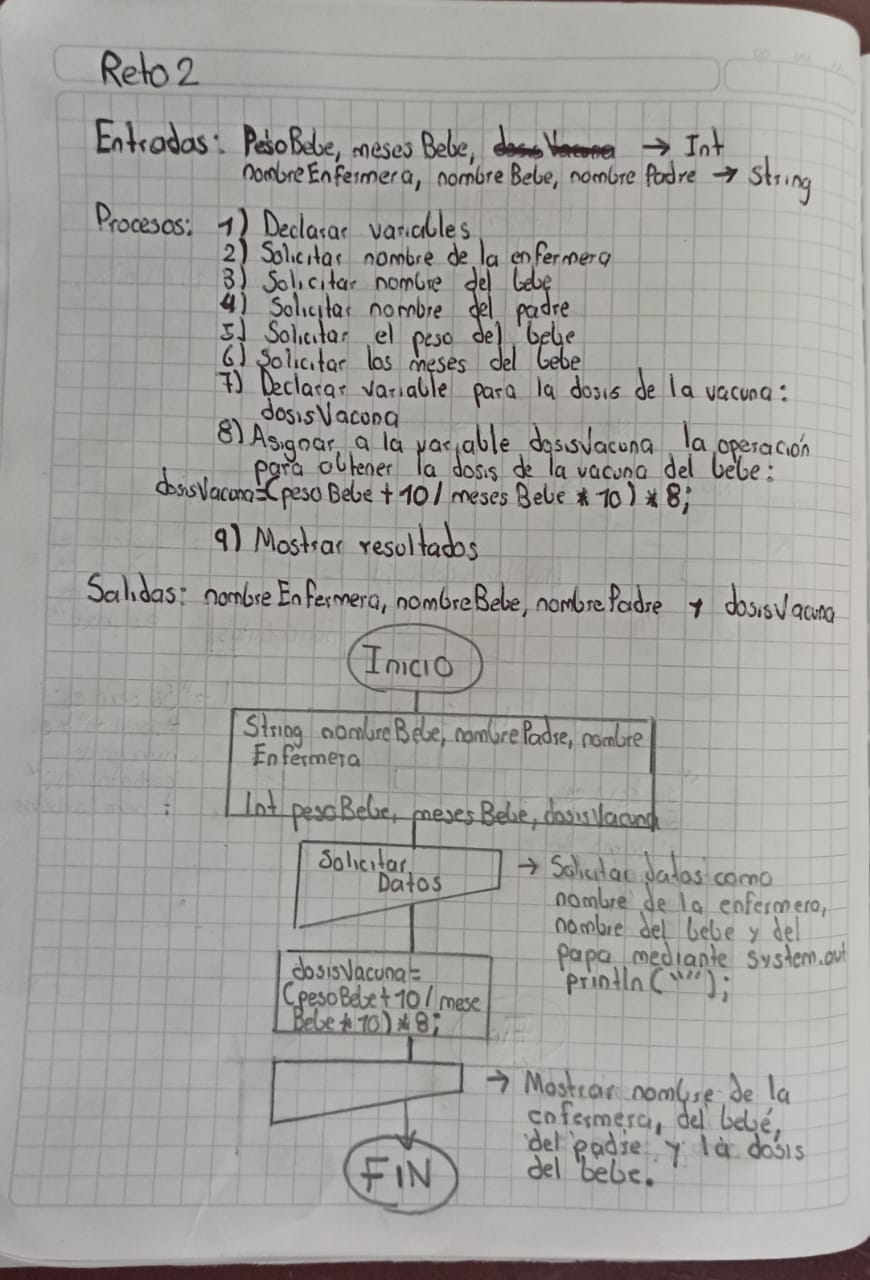 Reto 2
Entradas: PesoBebe, mesesBebe, → Int
nombreEnfermera, nombreBebe, nombre Padre → String
Procesos: 1) Declarar variables
2) Solicitar nombre de la enfermera
3) Solicitar nombre del bebe
4) Solicitar nombre del padre
5) Solicitar el peso del bebe
6) Solicitar los meses del bebe
7) Declarar variable para la dosis de la vacuna:
dosisVacuna
8) Asignar a la variable dosisVacuna la operación
para obtener la dosis de la vacuna del bebe:
dosisVacuna=(pesoBebe + 10 / mesesBebe * 10) * 8;
9) Mostrar resultados
Salidas: nombreEnfermera, nombreBebe, nombrePadre y dosisVacuna
Inicio
String nombreBebe, nombrePadre, nombre
Enfermera
Int pesoBebe, mesesBebe, dosisVacuna
Solicitar
Datos
→ Solicitar datos como
nombre de la enfermera,
nombre del bebe y del
papa mediante system.out
println("");
dosisVacuna=
(pesoBebe + 10 / mese
Bebe * 10) * 8;
→ Mostrar nombre de la
enfermera, del bebé,
del padre y la dosis
del bebe.
FIN